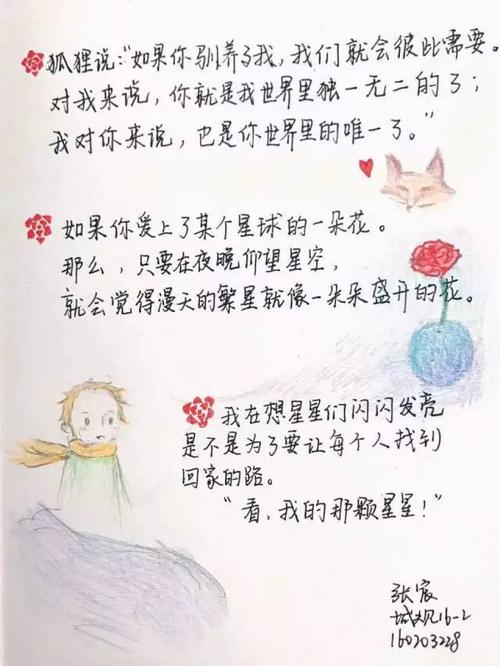 狐狸说:“如果你驯养了我,我们就会彼此需要。
对我来说,你就是我世界里独一无二的了;
我对你来说,也是你世界里的唯一了。”
如果你爱上了某个星球的一朵花。
那么,只要在夜晚仰望星空,
就会觉得漫天的繁星就像一朵朵盛开的花。
我在想星星们闪闪发亮
是不是为了要让每个人找到
回家的路。
“看,我的那颗星星!”
张宸
城规16-2
160203228